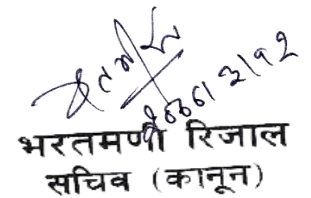 २०८१।३।१२
भरतमणी रिजाल
सचिव (कानून)